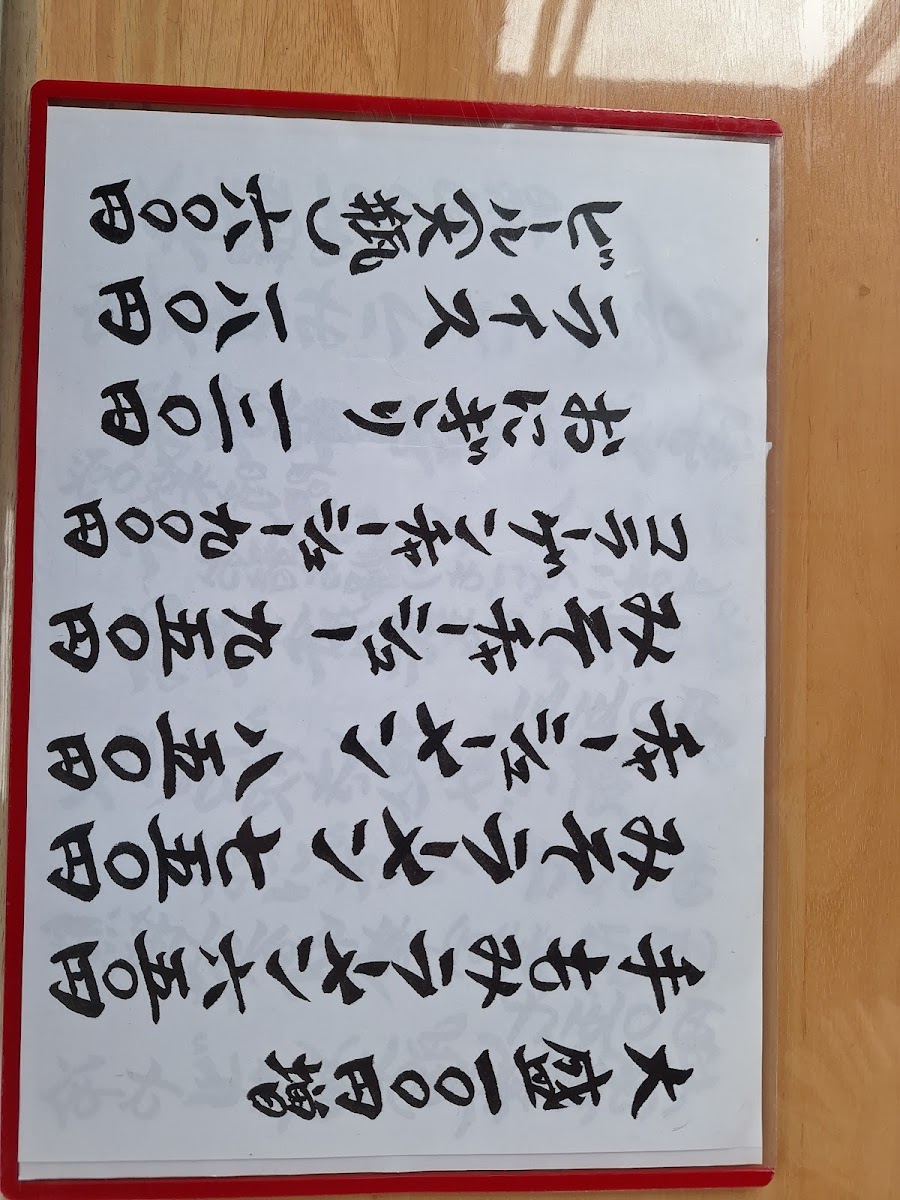 大盛一〇〇円増
手もみラーメン六五〇円
みそラーメン七五〇円
チャーシューメン八五〇円
みそチャーシュー九五〇円
コラーゲンチャーシュー九〇〇円
おにぎり 一二〇円
ライス 一八〇円
ビール(大瓶)六〇〇円